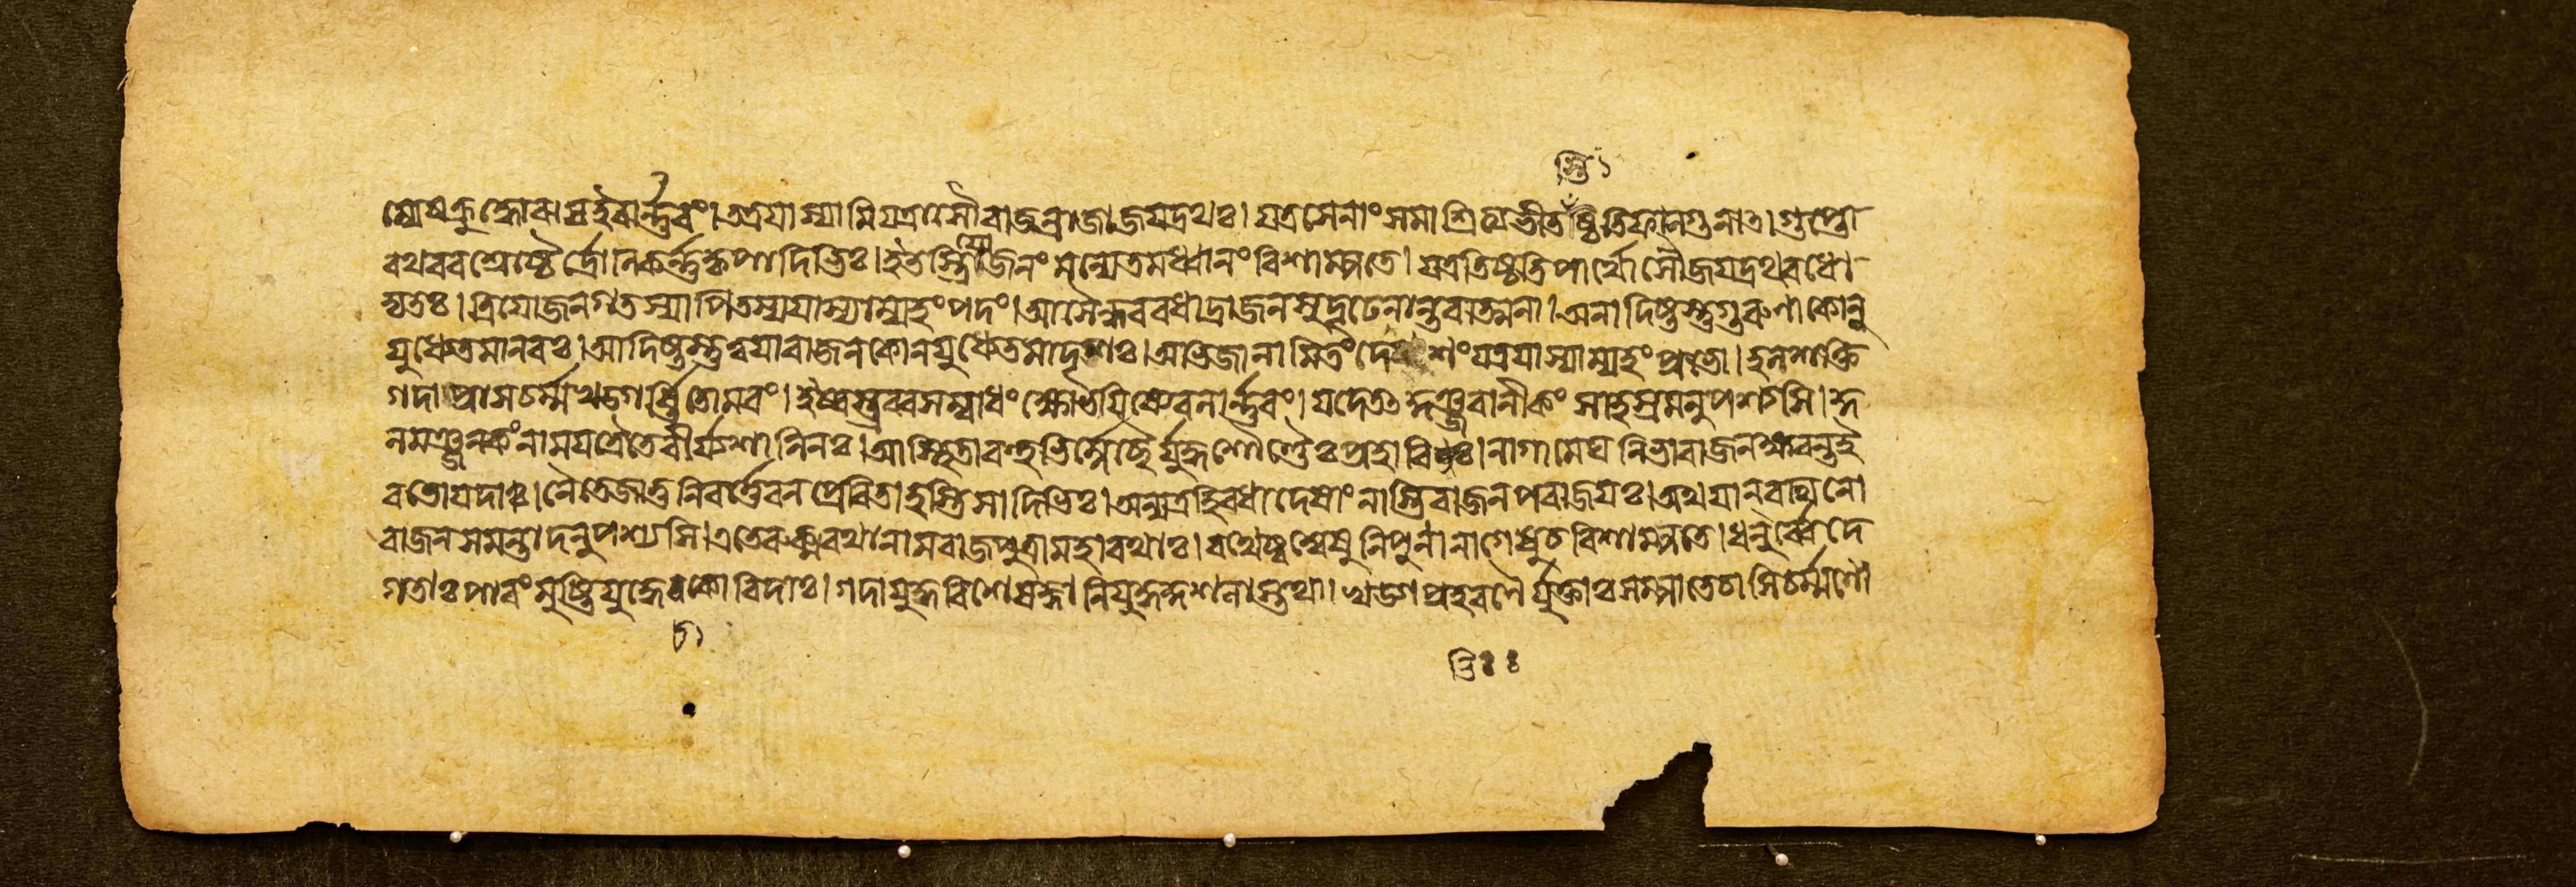 স্তি
ষ্যেষক্রুদ্ধোবাস্বইবার্ন্নবং।তত্রযাস্যামিযত্রাসৌরাজন্রাজাজয়দ্রথঃ। যত্রসেনাংসমাশ্রিত্যভীতষ্ঠিতিফাল্গুনাত। গুপ্তো
রথবরশ্রেষ্ঠৈর্দ্রৌনিকর্ন্নকৃপাদিভিঃ।ইতস্ত্রিযোজনংমন্যেতমধ্বানংবিশাম্পতে। যত্রতিষ্ঠতিপার্থোসৌজয়দ্রথবধো
দ্যতঃ।ত্রিযোজনগতস্যাপিতস্যযাস্যাম্যহংপদং।আসৈন্ধববধাদ্রাজনসুদৃঢেনান্তরাত্মনা।অনাদিষ্টস্তুগুরুণাকোনু
যুধ্যেতমানবঃ।আদিষ্টস্তুত্বয়ারাজনকোনযুধ্যেতমাদৃশঃ।অভিজানামিতংদেশংযত্রযাস্যাম্যহংপ্রভো।হুনশক্তি
গদাপ্রাসচর্ম্মখড্গর্ষ্টিতোমরং।ইষ্বস্ত্রবরসম্বাধংক্ষোভয়িষ্যেবলার্ন্নবং।যদেতৎকুঞ্জরানীকংসাহস্রমনুপশ্যসি।কু
লমঞ্জনকংনামযত্রৈতেবীর্য্যশালিনঃ।আস্থিতাবহুভির্ম্লেচ্ছৈর্যুদ্ধশৌণ্ডৈঃপ্রহারিঃ।নাগামেঘনিভারাজনক্ষরন্তই
বতোয়দাঃ।নৈতেজাতুনিবর্ত্তেরনপ্রেষিতাহস্তিসাদিভিঃ।অন্যত্রহিবধাদেষাংনাস্তিরাজনপরাজয়ঃ।অথযানরথিনো
রাজনসমন্তাদনুপশ্যসি।এতেরুক্মরথানামরাজপুত্রামহারথাঃ।রথেষ্বশ্বেষুনিপুনানাগেষুচবিশাম্পতে।ধনুর্ব্বেদে
গতাঃপারংমুষ্টিযুদ্ধেচকোবিদাঃ।গদাযুদ্ধবিশেষজ্ঞানিযুদ্ধকুশলাস্তথা।খড্গপ্রহরণৈর্যুক্তাঃসম্পাতেচাসিচর্ম্মণো
ভিঃ